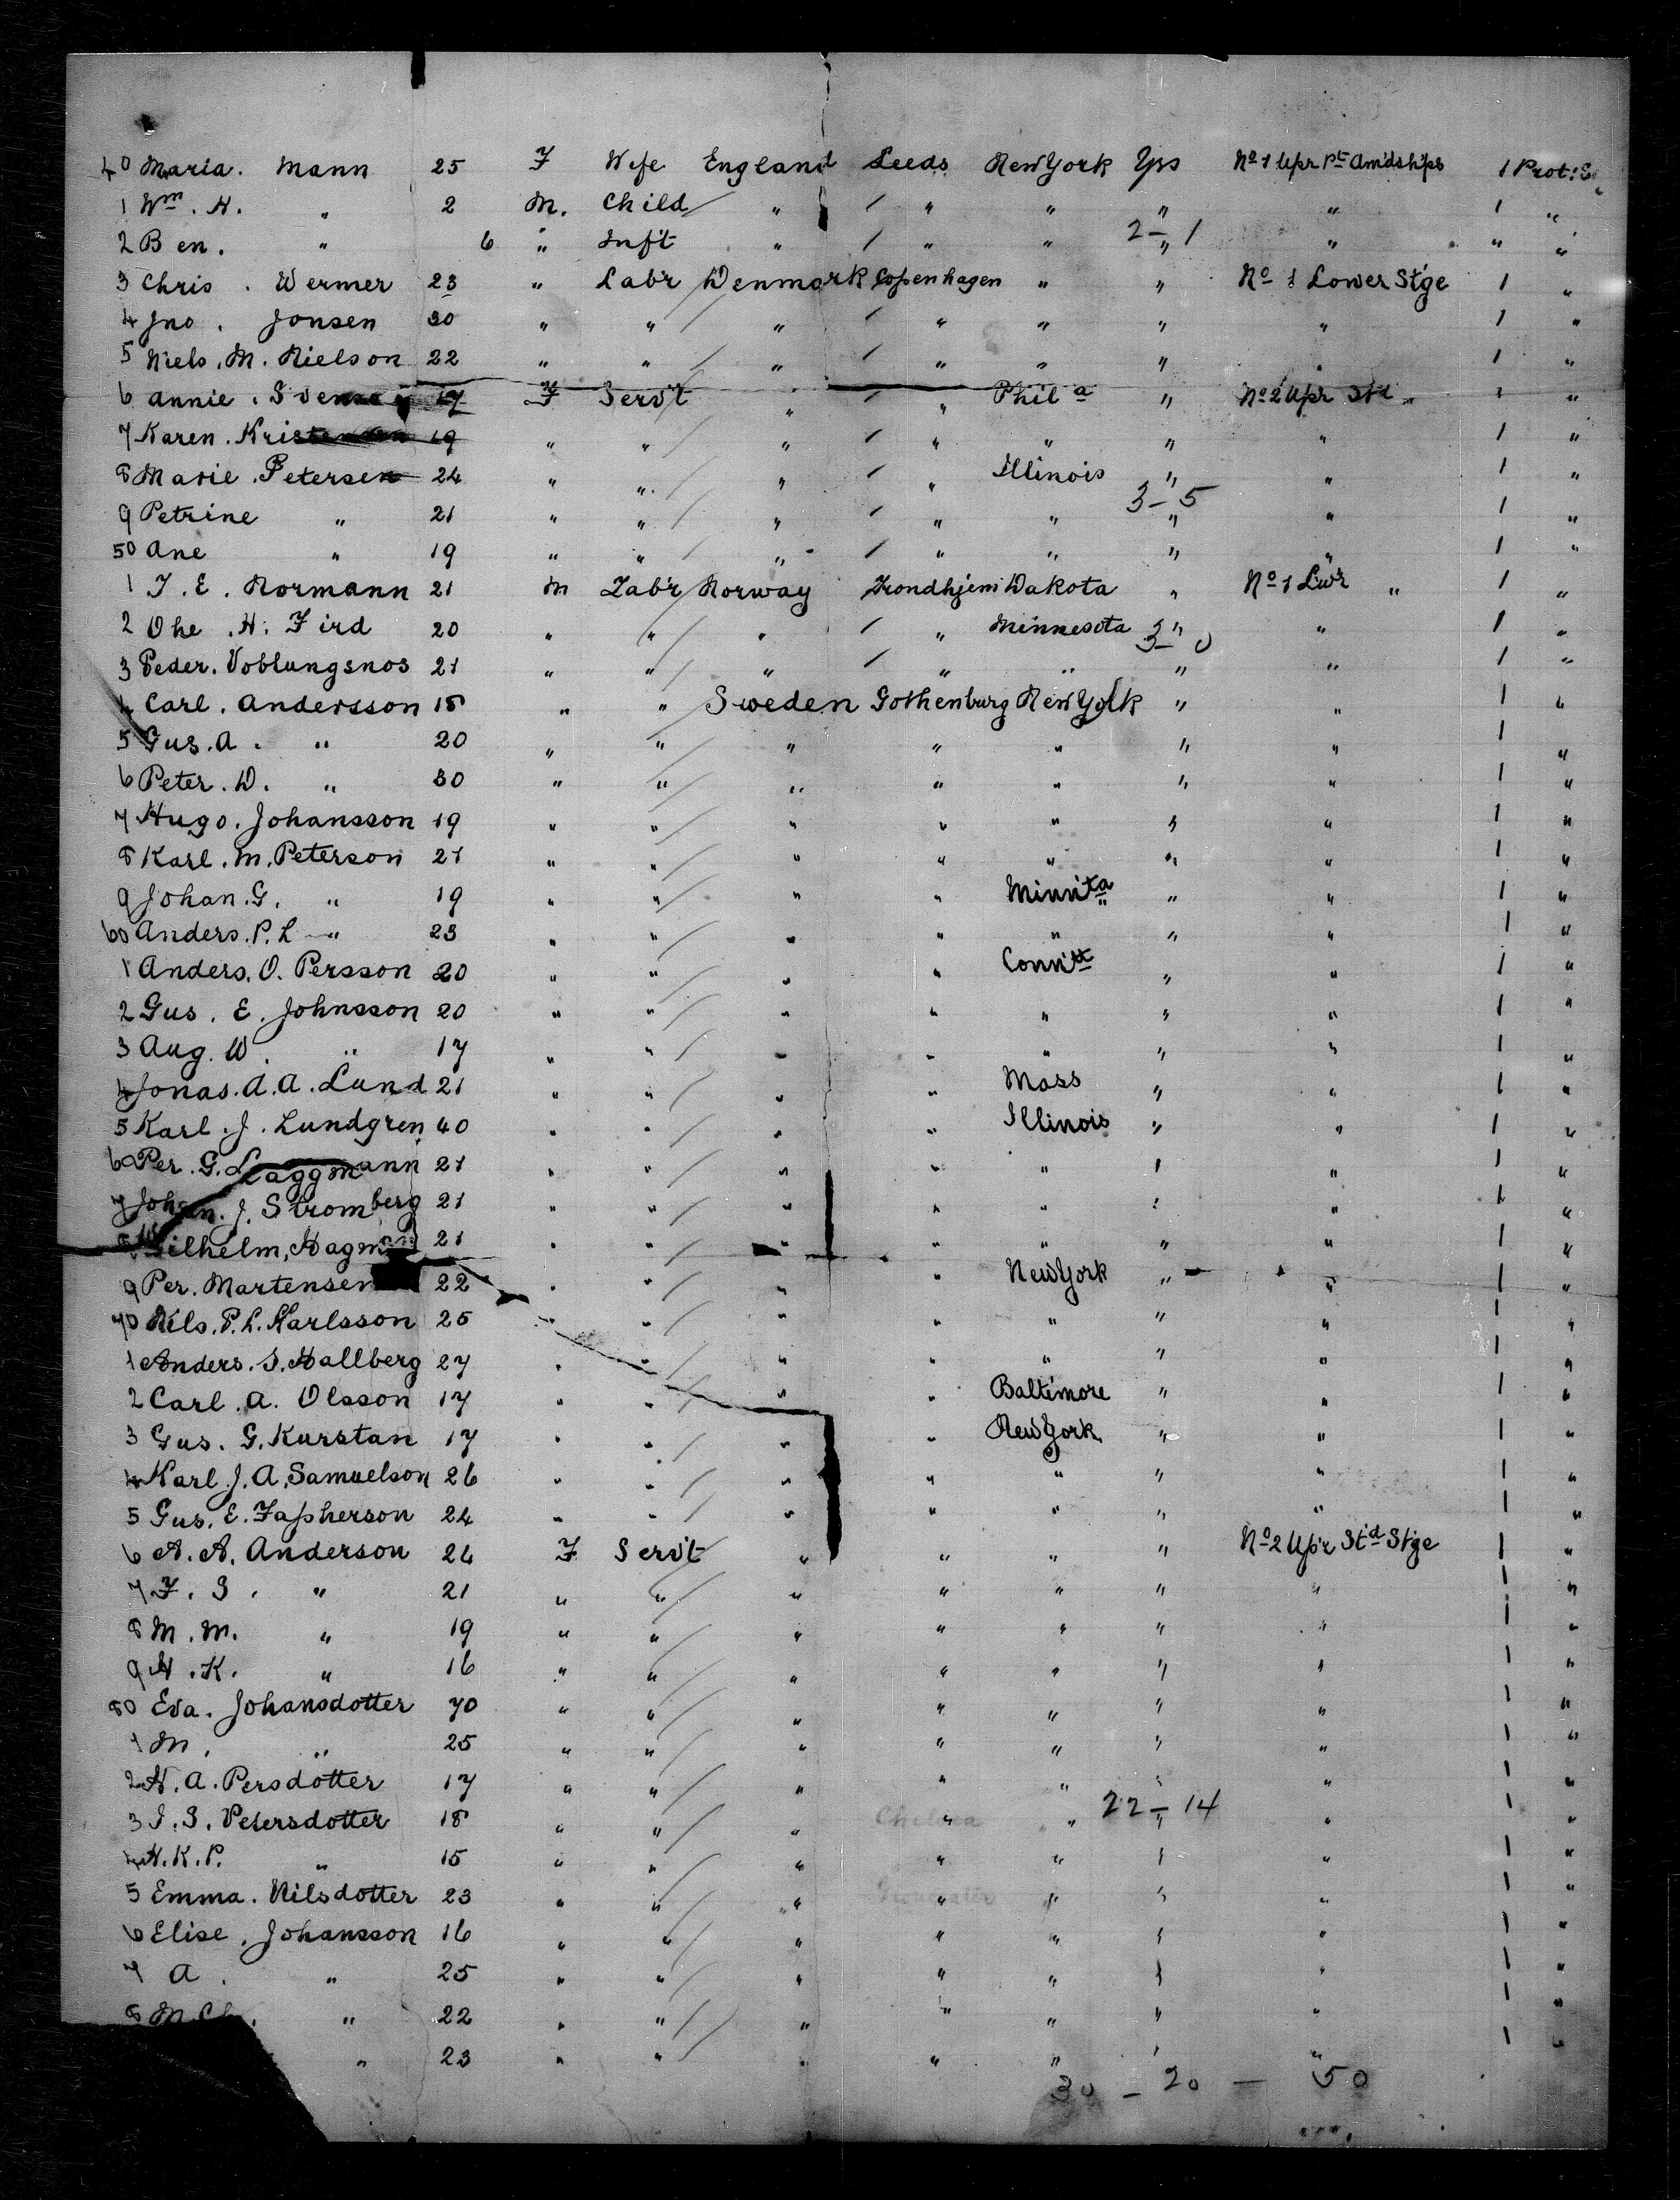 40 Maria. Mann 25 F Wife England Leeds New York Yes No 1 Upr Pt Amidships 1 Prot:
1 Wm. H. " 2 M. Child " / " " " " 1 "
2 Ben. " 6 " Inft " / " " 2 - 1 " " " "
3 Chris. Wermer 23 " Lab'r Denmark Copenhagen " " No 1 Lower St'ge 1 "
4 Jno. Jonsen 30 " " " / " " " " 1 "
5 Niels. M. Nielson 22 " " " / " " " " 1 "
6 Annie. 17 F Serv't " / " Phila " No 2 Upr Std " 1 "
7 Karen. 19 " " " / " " " " 1 "
8 Marie. Petersen 24 " " " / " Illinois " " 1 "
9 Petrine " 21 " " " / " " 3 - 5 " " 1 "
50 Ane " 19 " " " / " " " " 1 "
1 T. E. Normann 21 M Lab'r Norway Trondhjem Dakota " No 1 Lw'r " 1 "
2 Ohe. H. Fird 20 " " " / " Minnesota 3 - 0 " " 1 "
3 Peder. Voblungsnos 21 " " " / " " " " 1 "
4 Carl. Andersson 18 " " Sweden Gothenburg New York " " 1 "
5 Gus. A. " 20 " " " " " " " 1 "
6 Peter. D. " 30 " " " " " " " 1 "
7 Hugo. Johansson 19 " " " " " " " 1 "
8 Karl. M. Peterson 21 " " " " " " " 1 "
9 Johan. G. " 19 " " " " Minn'ta " " 1 "
60 Anders. P. L " 23 " " " " " " " 1 "
1 Anders. O. Persson 20 " " " " Conn'ct " " 1 "
2 Gus. E. Johnsson 20 " " " " " " " 1 "
3 Aug. W. " 17 " " " " " " " 1 "
4 Jonas. A. A. Lund 21 " " " " Mass " " 1 "
5 Karl. J. Lundgren 40 " " " " Illinois " " 1 "
6 Per. G. Laggmann 21 " " " " " " " 1 "
7 Johan. J. Stromberg 21 " " " " " " " 1 "
8 Wilhelm, Hagman 21 " " " " " " " 1 "
9 Per. Martensen 22 " " " " New York " " 1 "
70 Nils. P. L. Karlsson 25 " " " " " " " 1 "
1 Anders. S. Hallberg 27 " " " " " " " 1 "
2 Carl. A. Olsson 17 " " " " Baltimore " " 1 "
3 Gus. G. Kurstan 17 " " " " New York " " 1 "
4 Karl. J. A. Samuelson 26 " " " " " " " 1 "
5 Gus. E. Fapherson 24 " " " " " " " 1 "
6 A. A. Anderson 26 F Serv't " " " " No 2 Up'r Std St'ge 1 "
7 F. S. " 21 " " " " " " " 1 "
8 M. M. " 19 " " " " " " " 1 "
9 H. K. " 16 " " " " " " " 1 "
80 Eva. Johansdotter 70 " " " " " " " 1 "
1 M. " 25 " " " " " " " 1 "
2 H. A. Persdotter 17 " " " " " " " 1 "
3 I. S. Petersdotter 18 " " " " " 22 - 14 " " 1 "
4 H. K. P. " 15 " " " " " " " 1 "
5 Emma. Nilsdotter 23 " " " " " " " 1 "
6 Elise. Johansson 16 " " " " " " " 1 "
7 A. " 25 " " " " " " " 1 "
8 M. " 22 " " " " " " " 1 "
" 23 " " " " " " " 1 "
30 - 20 - 50